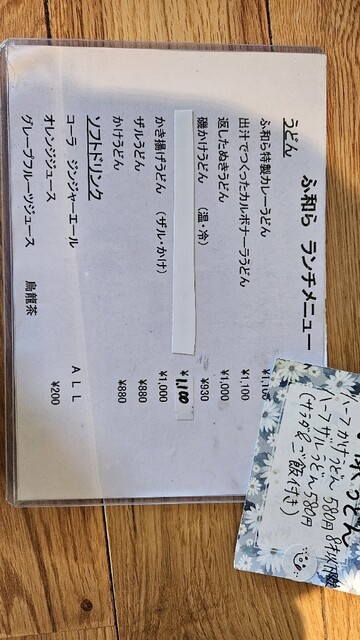 ふ和ら ランチメニュー
うどん
ふ和ら特製カレーうどん ¥1,100
出汁でつくったカルボナーラうどん ¥1,100
返したぬきうどん ¥1,000
磯かけうどん (温・冷) ¥930
¥1,100
かき揚げうどん (ザル・かけ) ¥1,000
ザルうどん ¥880
かけうどん ¥880
ソフトドリンク
コーラ ジンジャーエール ALL
オレンジジュース ¥200
グレープフルーツジュース 烏龍茶
うどん
ハーフかけうどん 580円
ハーフザルうどん 580円
(サラダ&ご飯付き)